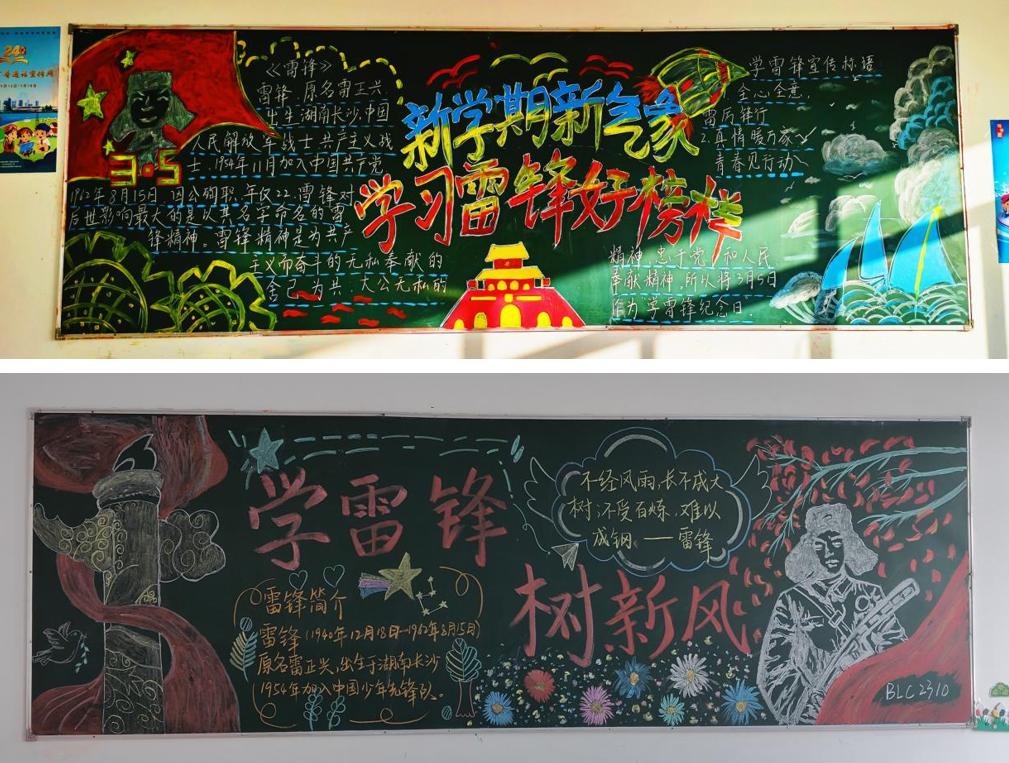 《雷锋》
雷锋,原名雷正兴,
出生湖南长沙,中国
人民解放军战士共产主义战
士,1954年11月加入中国共产党
1962年8月15日,因公殉职,年仅22.雷锋对
后世影响最大的是以其名字命名的雷
锋精神。雷锋精神是为共产
主义而奋斗的无私奉献的
舍己为共,大公无私的
3·5
新学期新气象
学习雷锋好榜样
学雷锋宣传标语
全心全意,
雷厉锋行
2.真情暖万家
青春见行动
精神,忠于党和人民
奉献精神,所以将3月5日
作为学雷锋纪念日.
学雷锋
树新风
不经风雨,长不成大
树;不受百炼,难以
成钢 ——雷锋
雷锋简介
雷锋(1940年12月18日-1962年8月15日)
原名雷正兴,出生于湖南长沙
1954年加入中国少年先锋队.
BLC2310